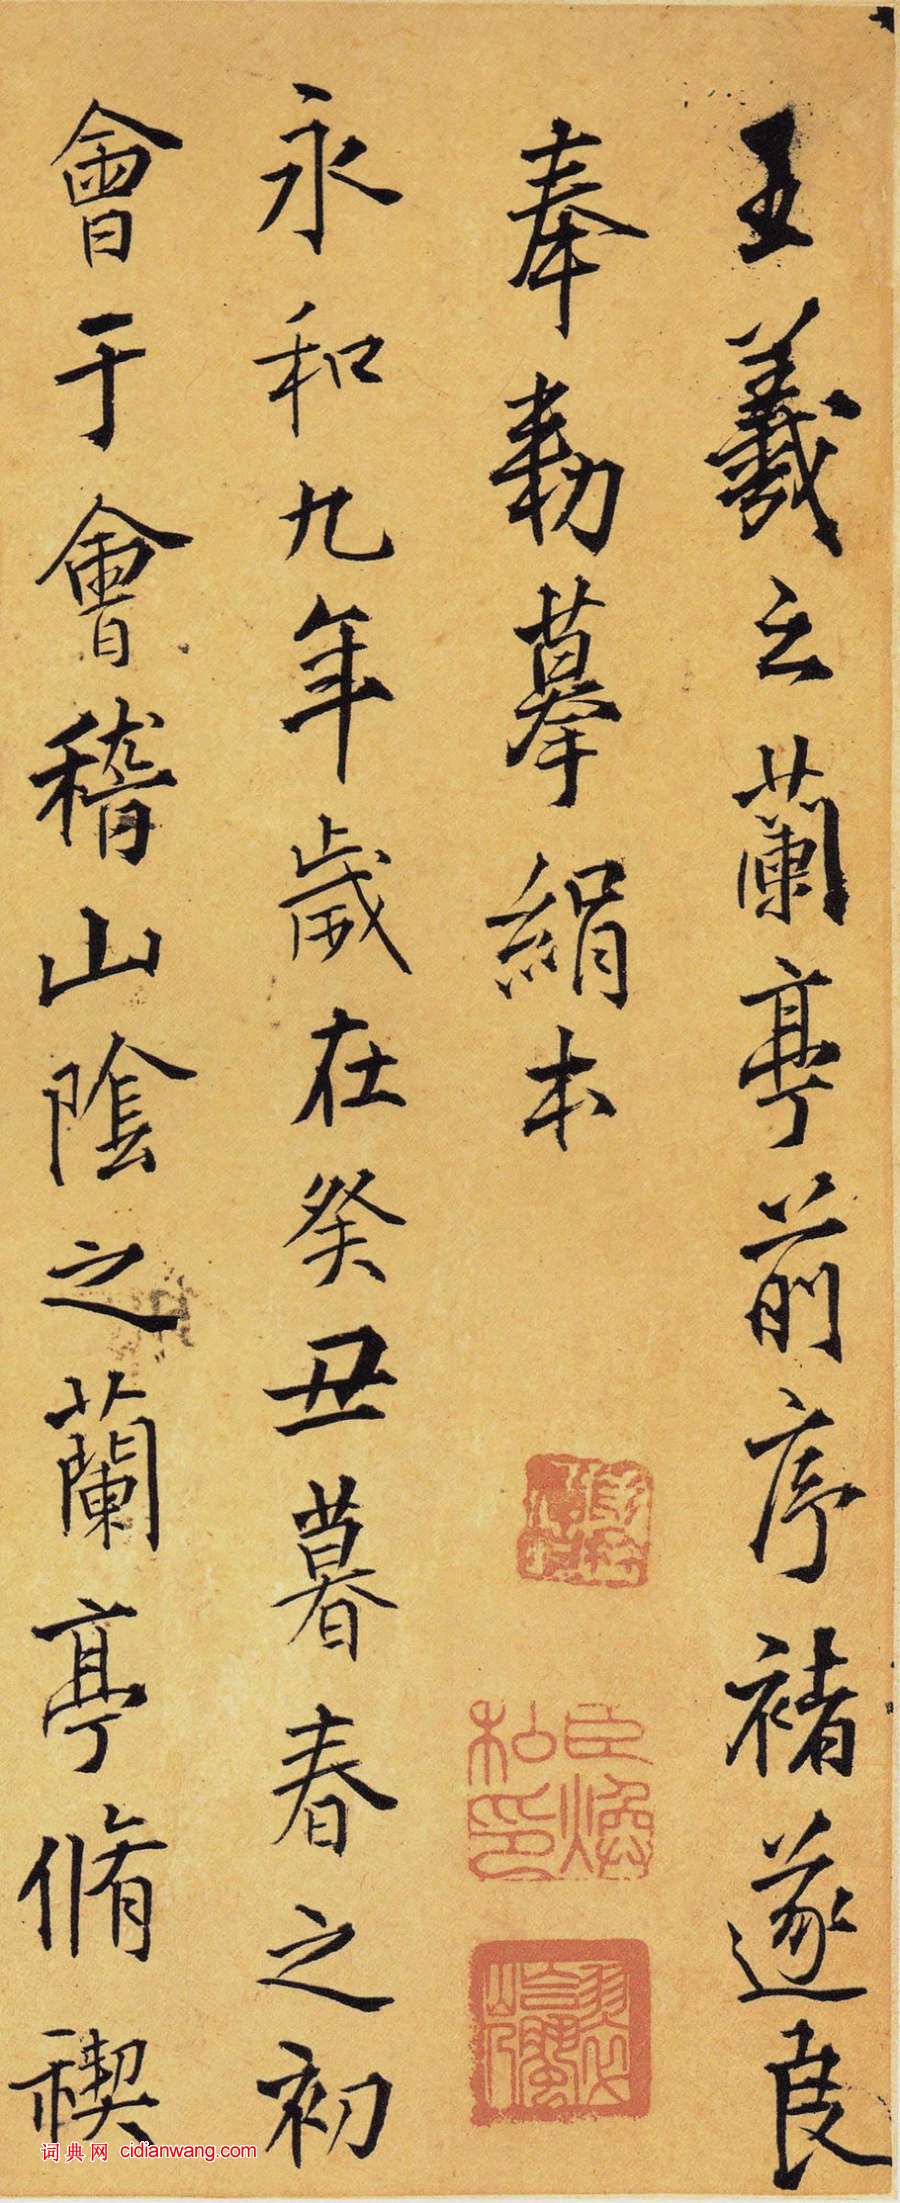 王羲之蘭亭前序褚遂良
奉勅摹絹本
永和九年歲在癸丑暮春之初
會于會稽山隂之蘭亭脩禊
臣煥
私印
词典网 cidianwang.com